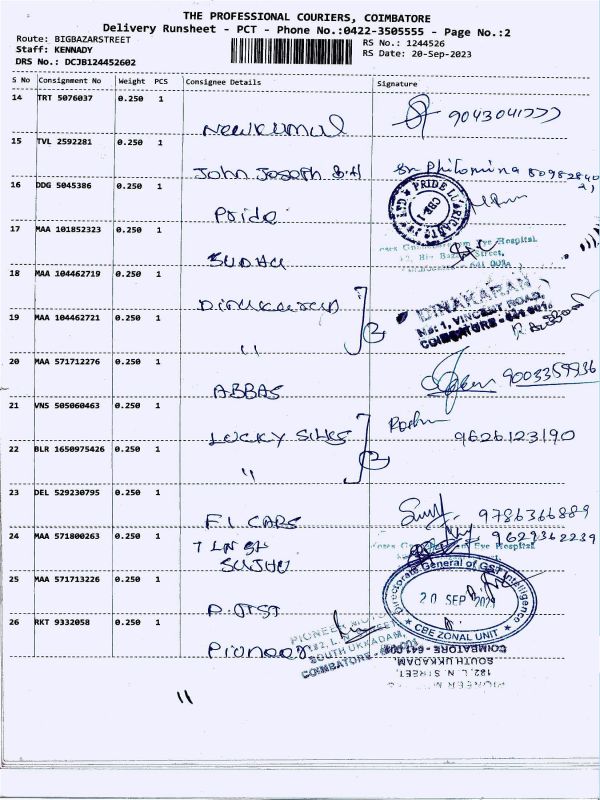 THE PROFESSIONAL COURIERS, COIMBATORE
Delivery Runsheet - PCT - Phone No.:0422-3505555 - Page No.:2
Route: BIGBAZARSTREET
RS No.: 1244526
Staff: KENNADY
RS Date: 20-Sep-2023
DRS No.: DCJB124452602
S No Consignment No Weight PCS Consignee Details Signature
14 TRT 5076037 0.250 1
15 TVL 2592281 0.250 1 John Joseph
Sr Philomina
16 DDG 5045386 0.250 1 Pride
PRIDE LUBRICANTS
17 MAA 101852323 0.250 1
Eye Hospital
18 MAA 104462719 0.250 1
DINAKARAN
No: 1, VINCENT ROAD,
COIMBATORE - 641 001.
19 MAA 104462721 0.250 1 "
20 MAA 571712276 0.250 1 ABBAS
9003359936
21 VNS 505060463 0.250 1 LUCKY SILKS
9626123190
22 BLR 1650975426 0.250 1 "
23 DEL 529230795 0.250 1 F.I. CARS
9786366889
24 MAA 571800263 0.250 1
9629362239
Eye Hospital
25 MAA 571713226 0.250 1
Directorate General of GST Intelligence
20 SEP
CBE ZONAL UNIT
26 RKT 9332058 0.250 1 Pioneer
PIONEER
SOUTH UKKADAM,
COIMBATORE - 641 001
COIMBATORE - 641 001
SOUTH UKKADAM
182, L. N. STREET,
"